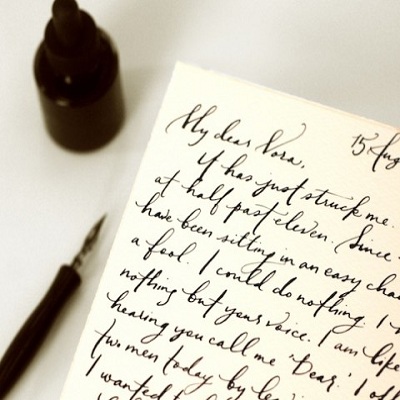 My dear Nora, 15 Aug
It has just struck me.
at half past eleven. Since
have been sitting in an easy chai
a fool. I could do nothing. I
nothing but your voice. I am like
hearing you call me 'Dear.' I of
two men today by le
I wanted